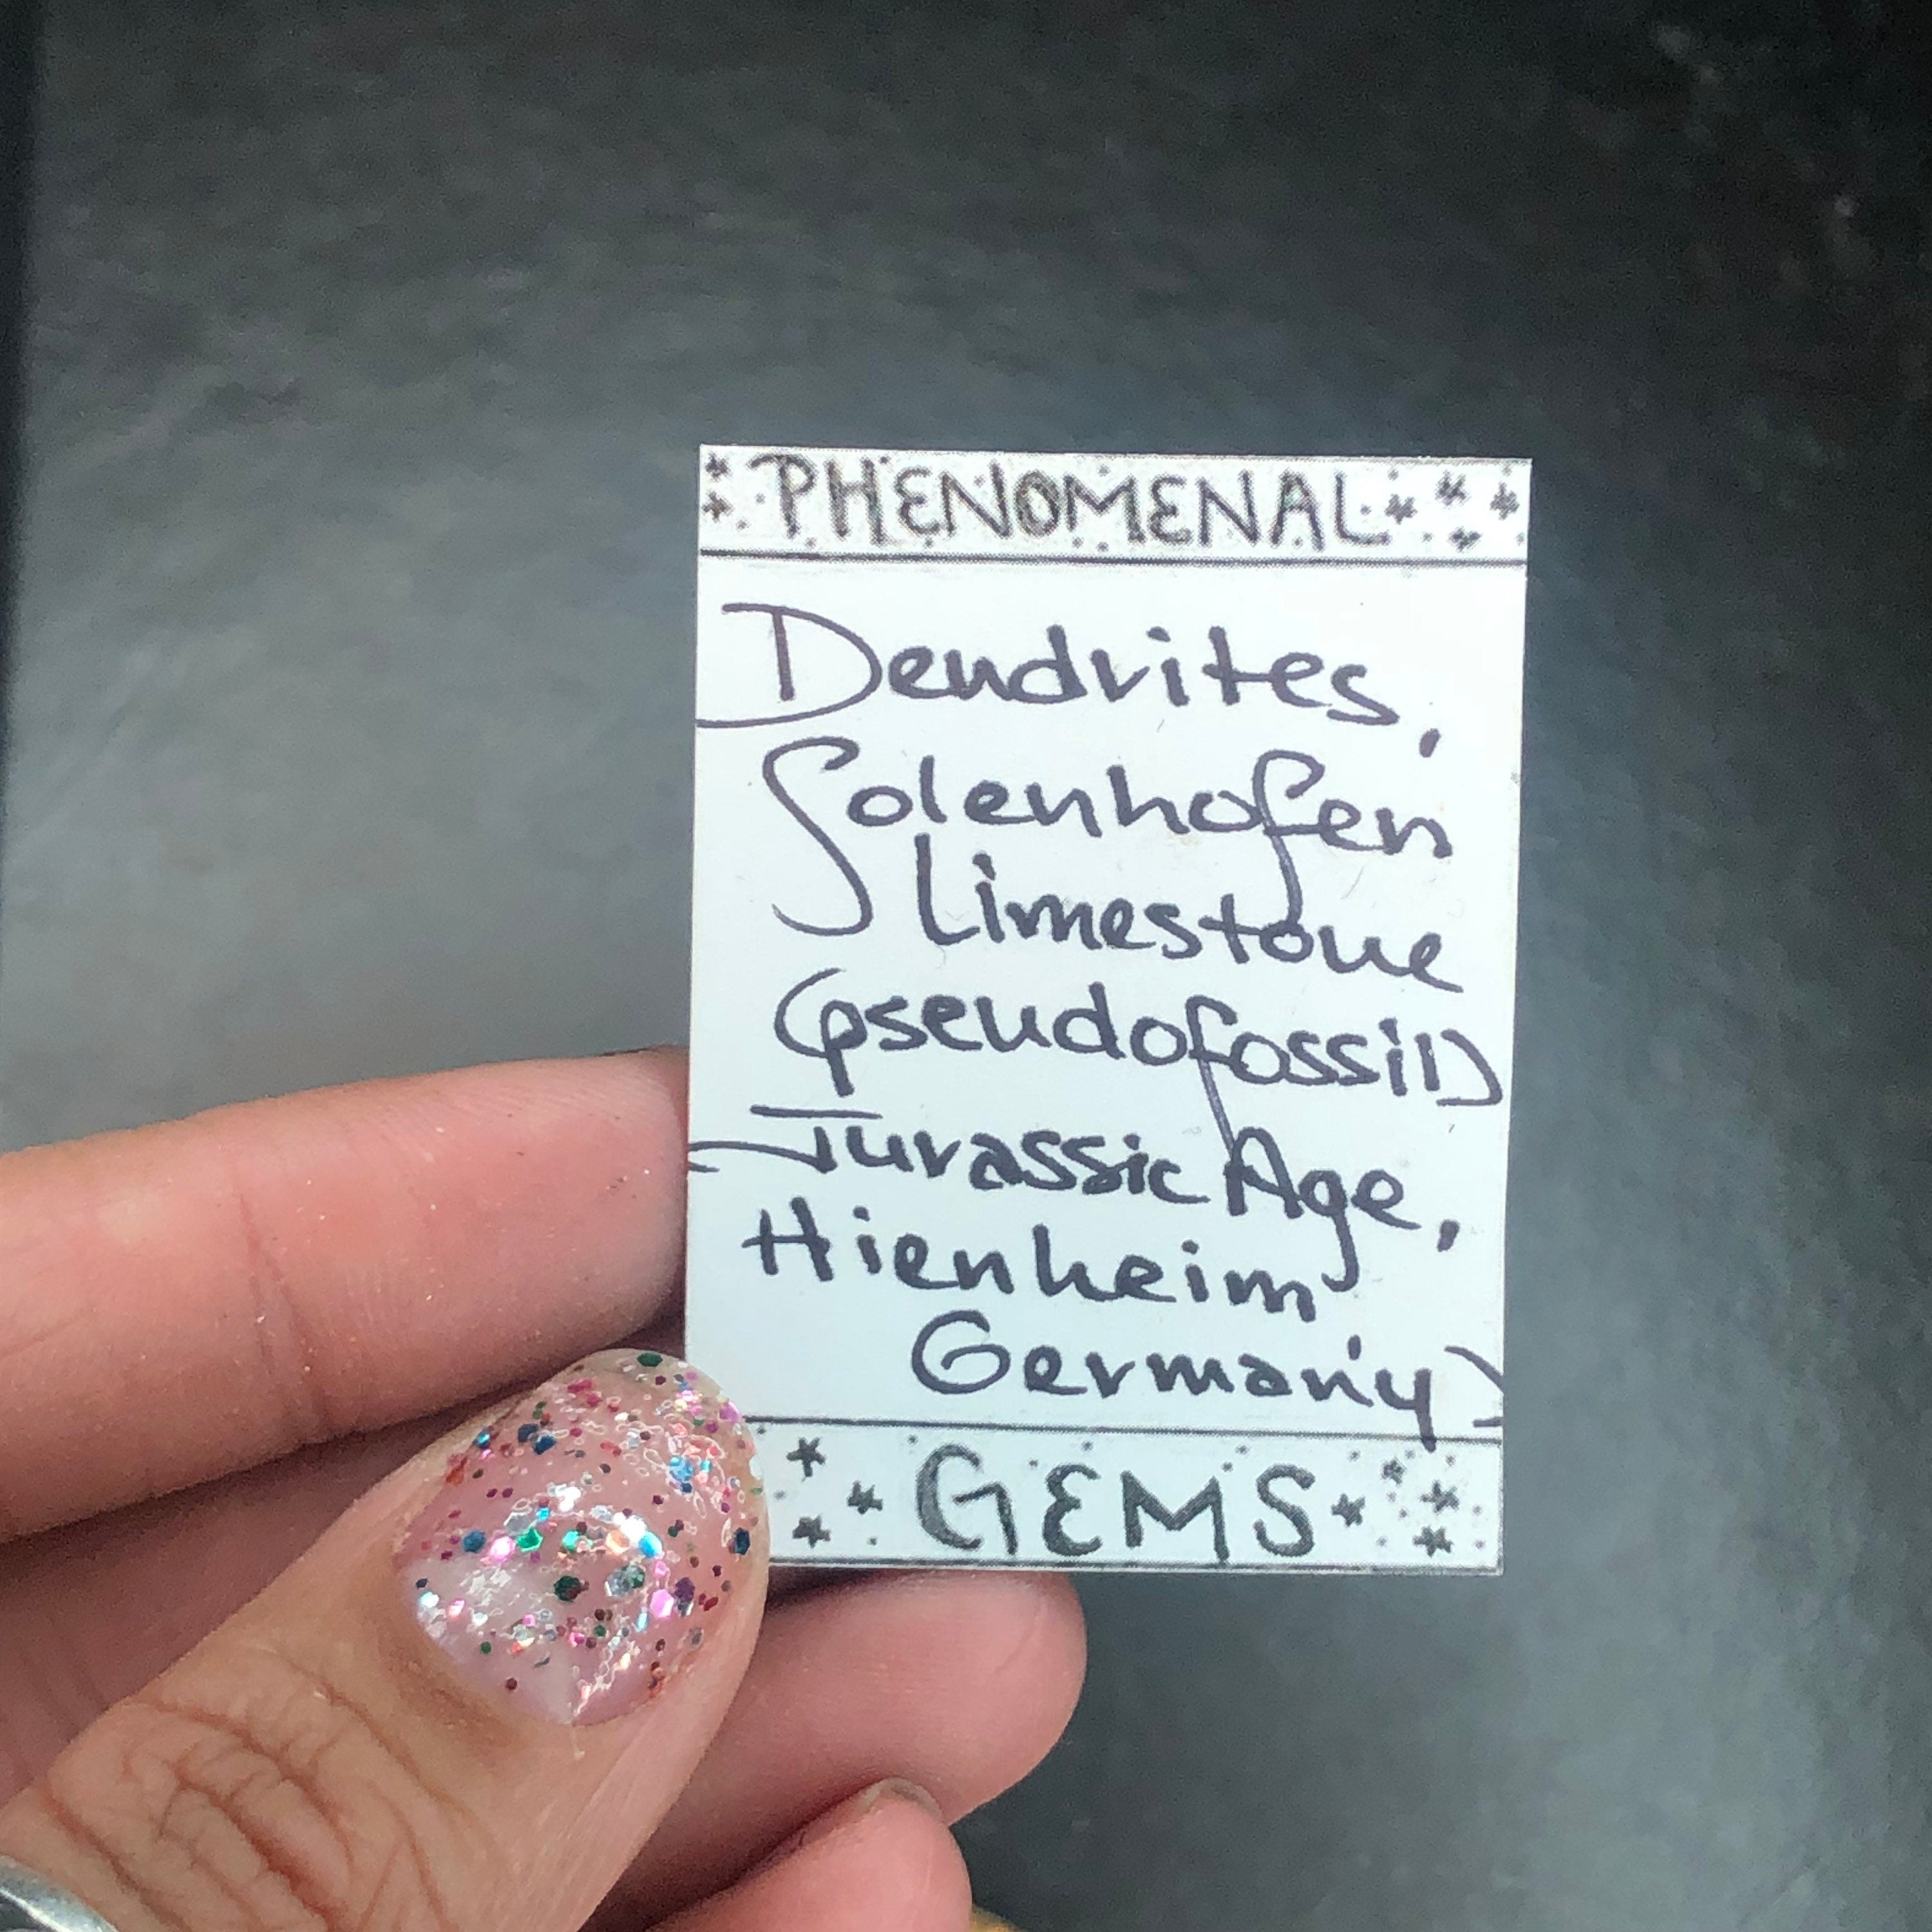 PHENOMENAL
Dendrites,
Solenhofen
Limestone
(pseudofossil)
Jurassic Age,
Hienheim,
Germany)
GEMS